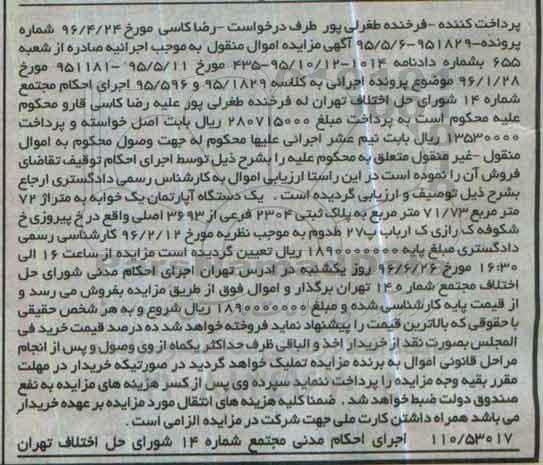 پرداخت کننده -فرخنده طغرلی پور طرف درخواست -رضا کاسی مورخ ۹۶/۴/۲۴ شماره
پرونده-۹۵۱۸۲۹-۹۵/۵/۶ آگهی مزایده اموال منقول به موجب اجرائیه صادره از شعبه
۶۵۵ بشماره دادنامه ۱۰۱۴-۹۵/۱۰/۱۲-۴۳۵ مورخ ۹۵/۵/۱۱- ۹۵۱۱۸۱ مورخ
۹۶/۱/۲۸ موضوع پرونده اجرائی به کلاسه ۹۵/۱۸۲۹ و ۹۵/۵۹۶ اجرای احکام مجتمع
شماره ۱۴ شورای حل اختلاف تهران له فرخنده طغرلی پور علیه رضا کاسی قارو محکوم
علیه محکوم است به پرداخت مبلغ ۲۸۰۷۱۵۰۰۰ ریال بابت اصل خواسته و پرداخت
۱۳۵۳۰۰۰۰ ریال بابت نیم عشر اجرائی علیها محکوم له جهت وصول محکوم به اموال
منقول -غیر منقول متعلق به محکوم علیه را بشرح ذیل توسط اجرای احکام توقیف تقاضای
فروش آن را نموده است در این راستا ارزیابی اموال به کارشناس رسمی دادگستری ارجاع
بشرح ذیل توصیف و ارزیابی گردیده است . یک دستگاه آپارتمان یک خوابه به متراژ ۷۲
متر مربع ۷۱/۷۳ متر مربع به پلاک ثبتی ۲۳۰۴ فرعی از ۳۶۹۳ اصلی واقع در خ پیروزی خ
شکوفه ک رازی ک ارباب پ۲۷ ط دوم به موجب نظریه مورخ ۹۶/۲/۱۲ کارشناسی رسمی
دادگستری مبلغ پایه ۱۸۹۰۰۰۰۰۰۰ ریال تعیین گردیده است مزایده از ساعت ۱۶ الی
۱۶:۳۰ مورخ ۹۶/۶/۲۶ روز یکشنبه در ادرس تهران اجرای احکام مدنی شورای حل
اختلاف مجتمع شماره ۱۴ تهران برگذار و اموال فوق از طریق مزایده بفروش می رسد و
از قیمت پایه کارشناسی شده و مبلغ ۱۸۹۰۰۰۰۰۰۰ ریال شروع و به هر شخص حقیقی
یا حقوقی که بالاترین قیمت را پیشنهاد نماید فروخته خواهد شد ده درصد قیمت خرید فی
المجلس بصورت نقد از خریدار اخذ و الباقی ظرف حداکثر یکماه از وی وصول و پس از انجام
مراحل قانونی اموال به برنده مزایده تملیک خواهد گردید در صورتیکه خریدار در مهلت
مقرر بقیه وجه مزایده را پرداخت ننماید سپرده وی پس از کسر هزینه های مزایده به نفع
صندوق دولت ضبط خواهد شد . ضمنا کلیه هزینه های انتقال مورد مزایده بر عهده خریدار
می باشد همراه داشتن کارت ملی جهت شرکت در مزایده الزامی است .
۱۱۰/۵۳۰۱۷ اجرای احکام مدنی مجتمع شماره ۱۴ شورای حل اختلاف تهران